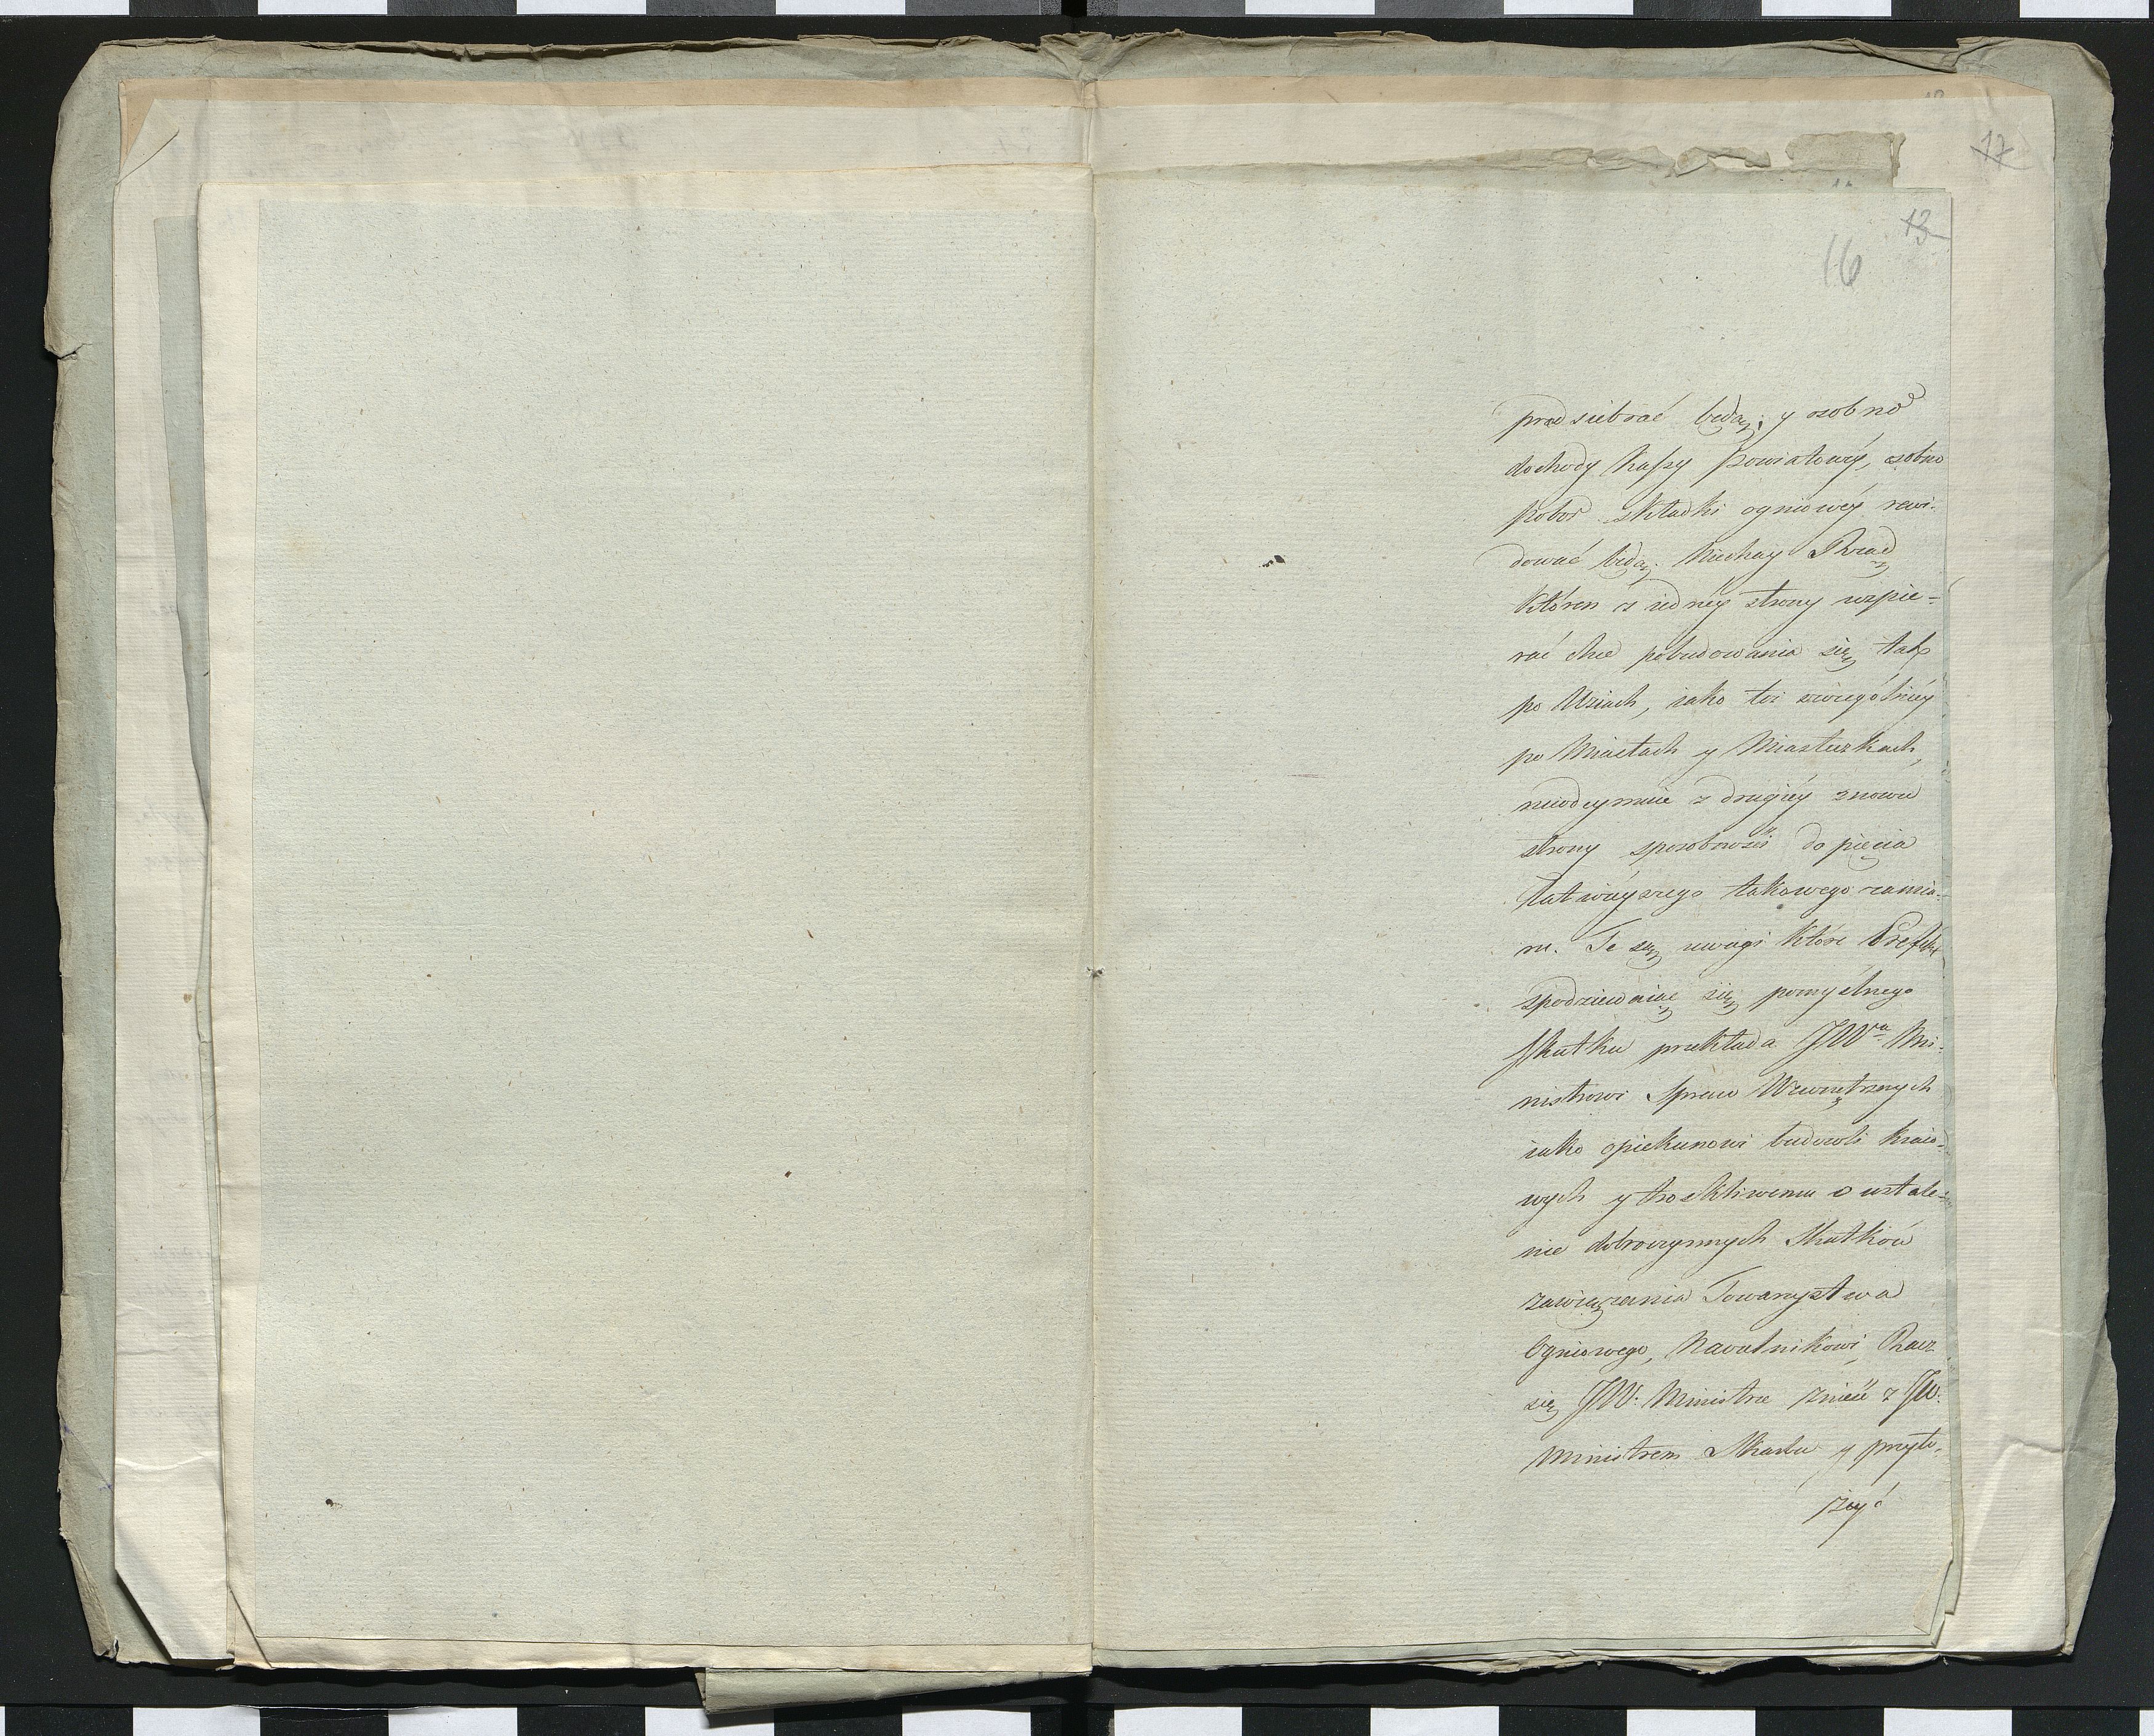 17
13
16
przedsiebrać będą; y osobno
dochody Kassy Powiatowéy, osobno
pobor składki ogniowéy rewi-
dować będą. Niechay Rząd
któren z iednéy strony wspie-
rać chce pobudowania się tak
po Wsiach, iako też szczególniey
po Miastach y Miasteczkach,
nieodeymuie z drugiéy znowu
strony sposobności dopięcia
łatwieyszego takowego zamia-
ru. Te są uwagi które Prefekt
spodziewaiąc się pomyślnego
skutku przekłada JWu Mi-
nistrowi Spraw Wewnętrznych
iako opiekunowi budowli kraio-
wych y troskliwemu o ustale-
nie dobroczynnych skutków
zawiązania Towarzystwa
Ogniowego, Racz
się JW: Ministrze znieść z JW:
Ministrem Skarbu y przyło-
żyć